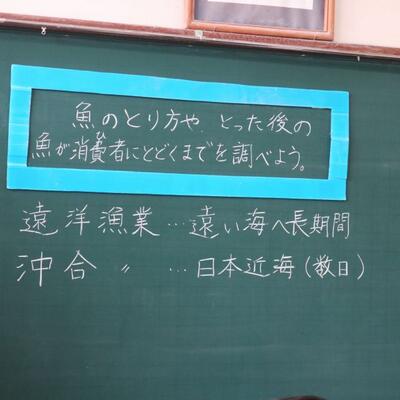 魚のとり方や、とった後の
魚が消費者にとどくまでを調べよう。
遠洋漁業…遠い海へ長期間
沖合 〃 …日本近海(数日)